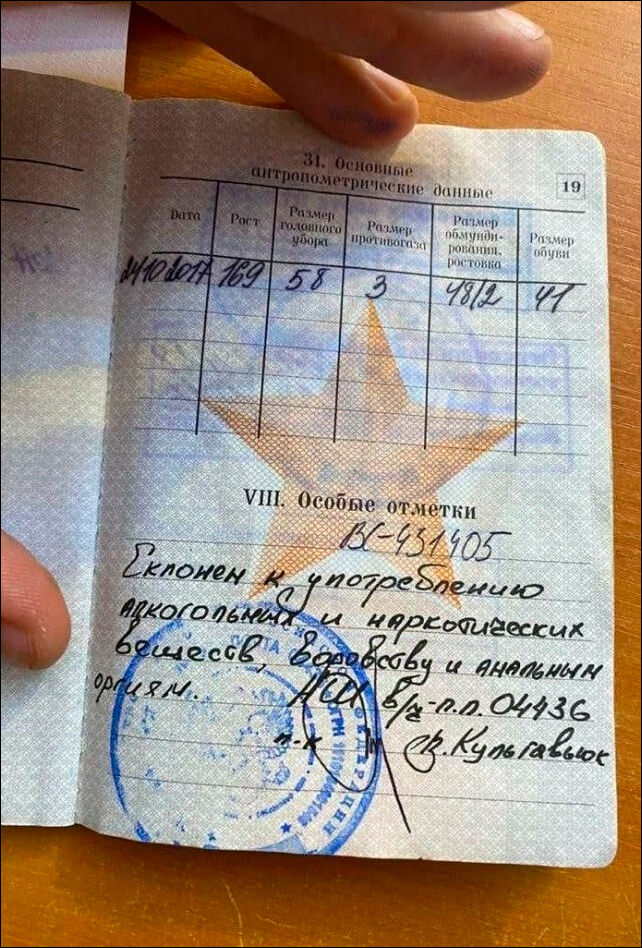 31. Основные
антропометрические данные
19
Дата Рост Размер головного убора Размер противогаза Размер обмунди-рования, ростовка Размер обуви
24102017 169 58 3 48/2 41
VIII. Особые отметки
ВС-431405
Склонен к употреблению
алкогольных и наркотических
веществ, воровству и анальным
оргиям. НШ в/ч-п.п. 04436
п-к С.Культавыюк
ФЕДЕРАЦИИ
ОГРН